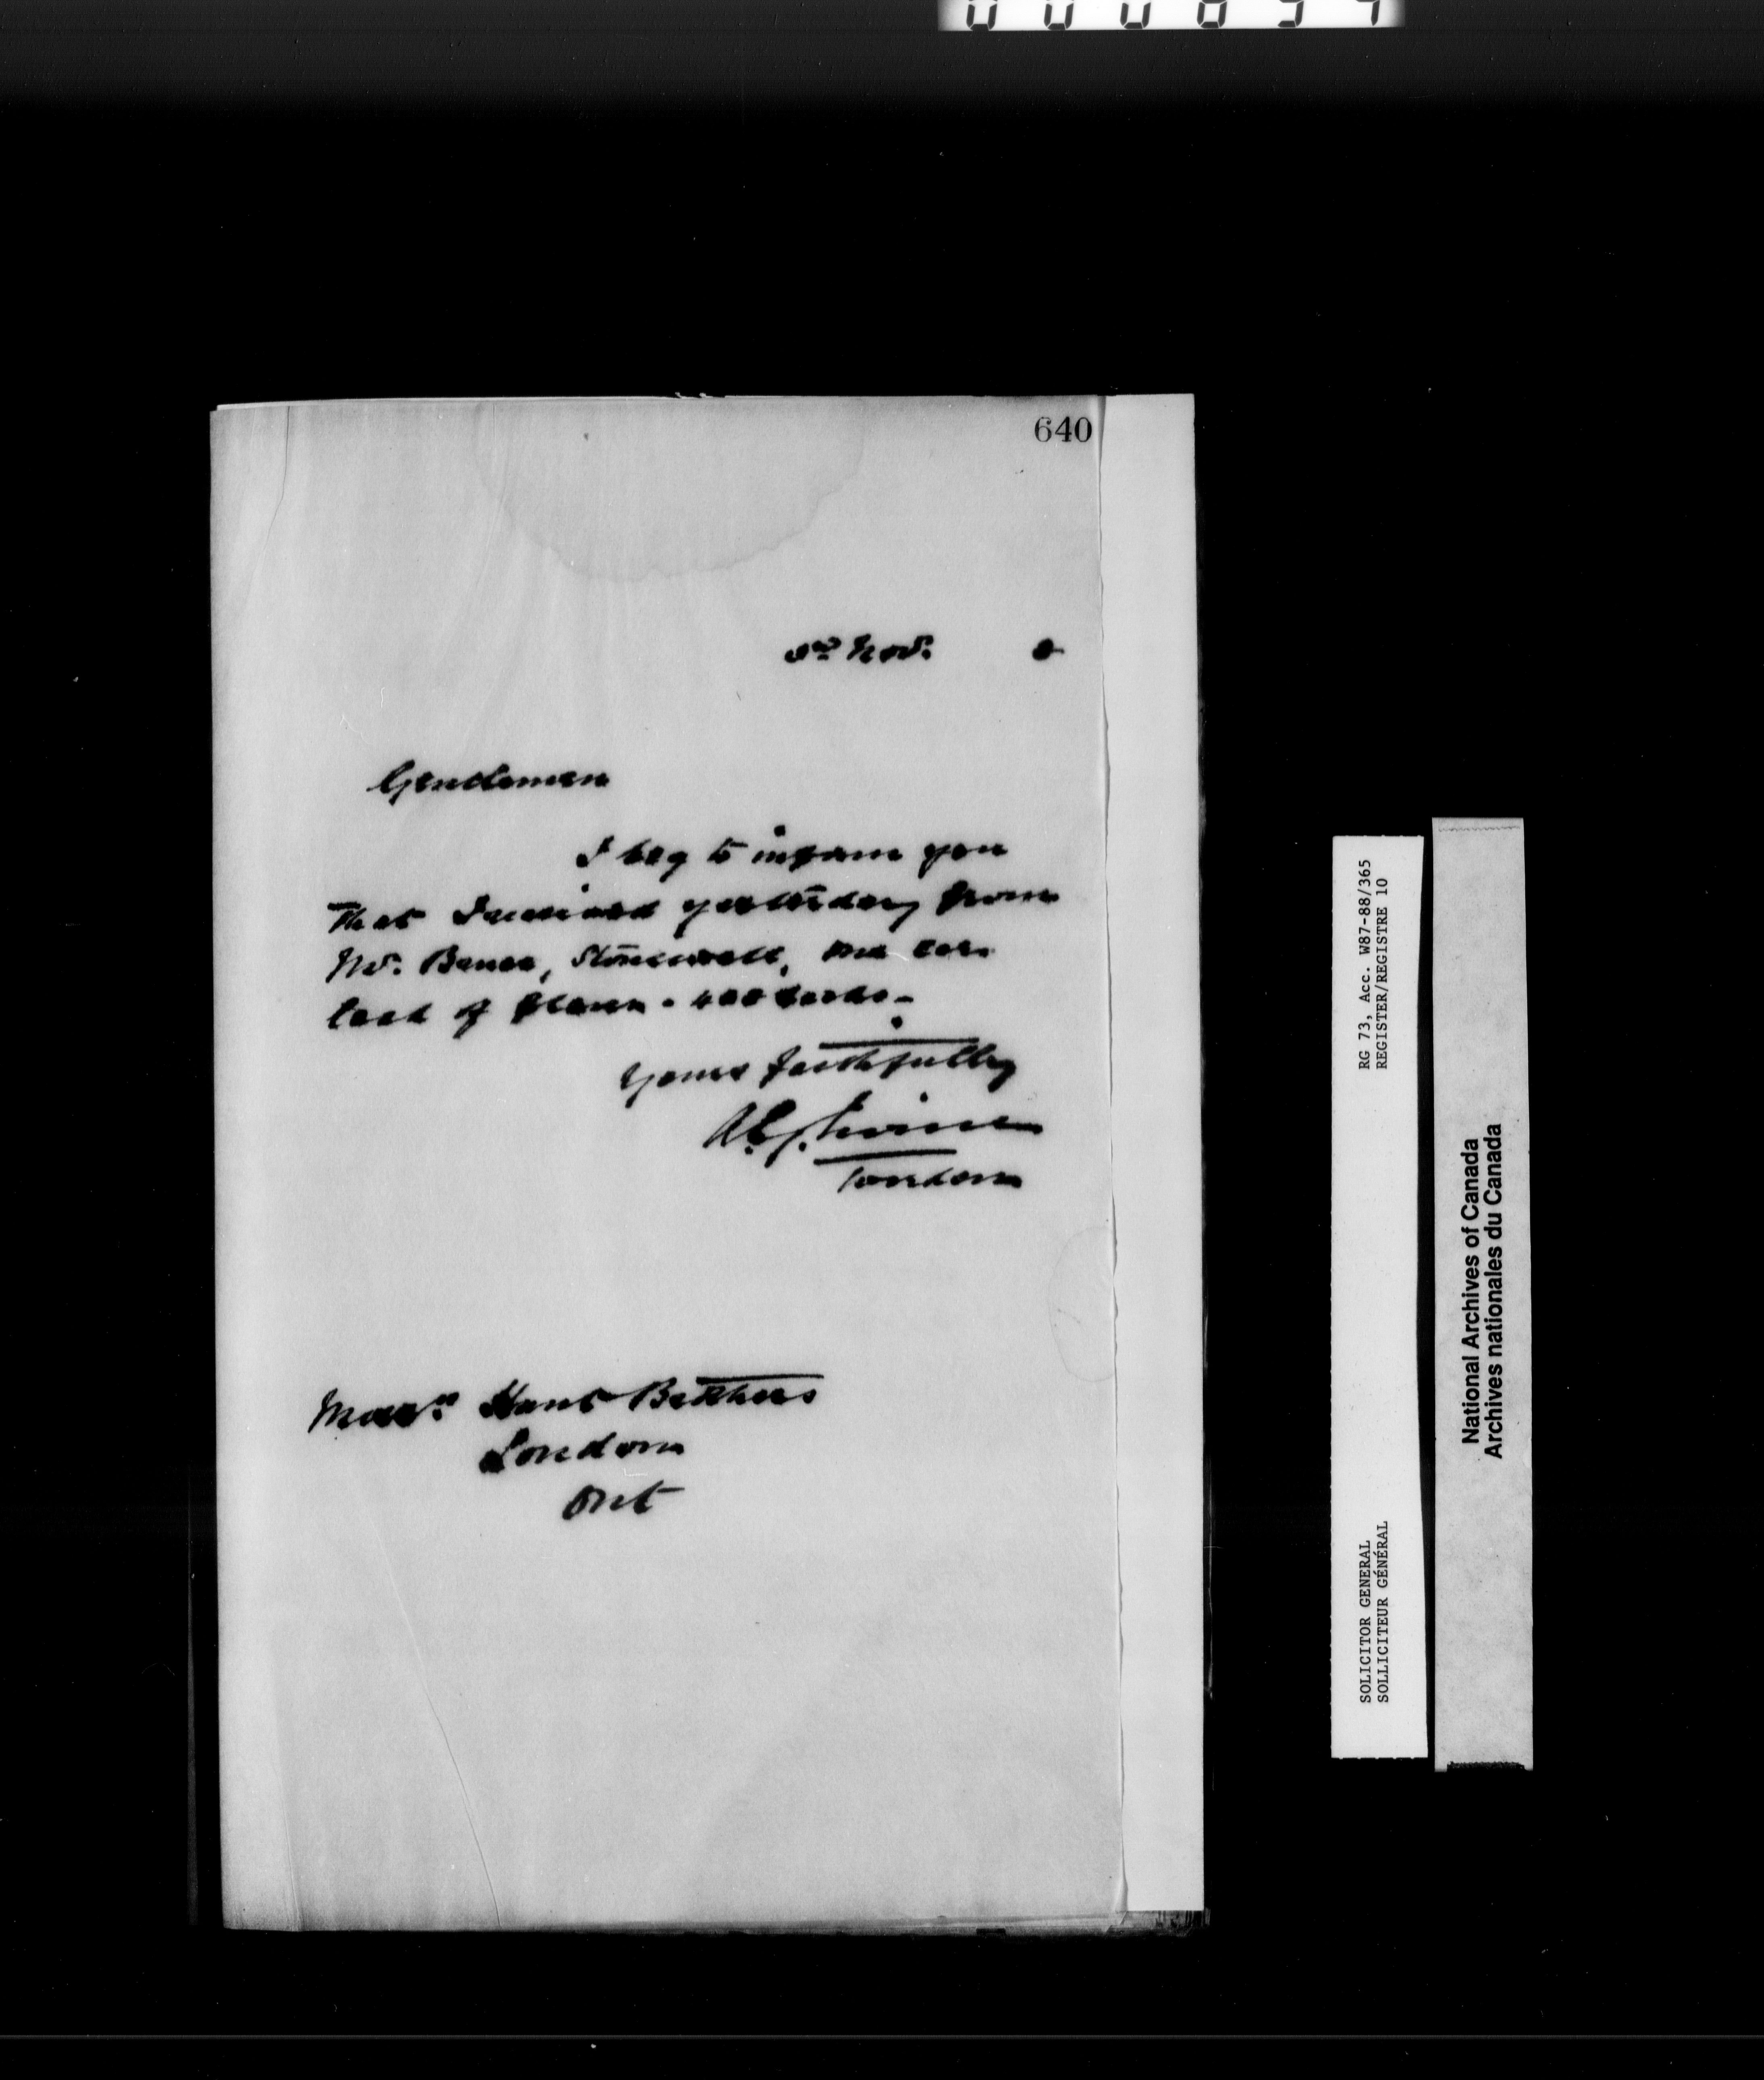 640
3rd Nov.
Gentlemen
I beg to inform you
that I received yesterday from
Mr. Stonewall, one car
load of flour
Yours faithfully
Irvine
Warden
Messrs Hunt Brothers
London
Ont
RG 73, Acc. W87-88/365
REGISTER/REGISTRE 10
SOLICITOR GENERAL
SOLLICITEUR GÉNÉRAL
National Archives of Canada
Archives nationales du Canada